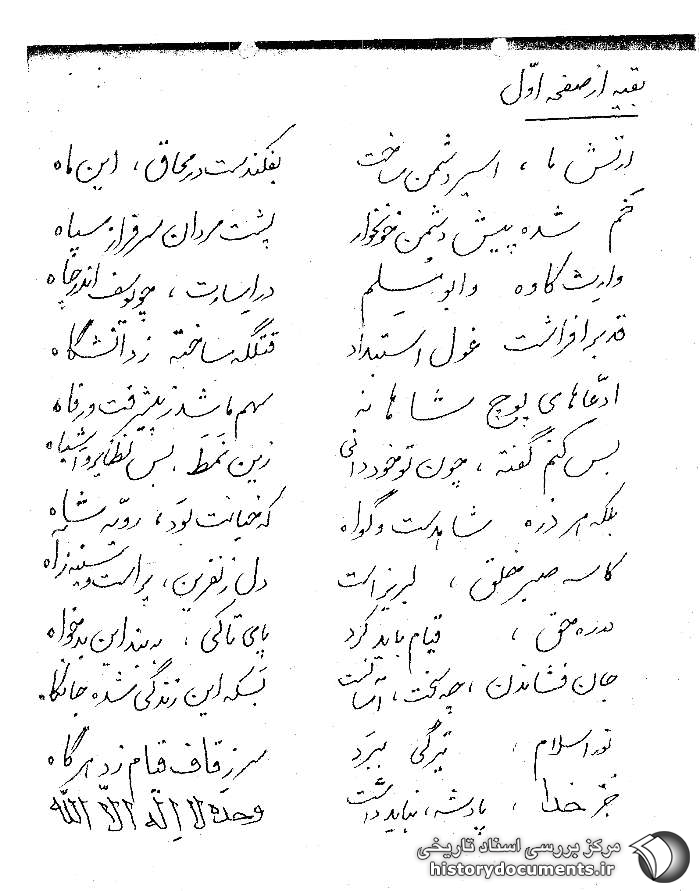 بقیه از صفحه اوّل
ارتش ما ، اسیر دشمن ساخت بفکندست در محاق ، این ماه
خم شده پیش دشمن خونخوار پشت مردان سرفراز سپاه
وارث کاوه و ابومُسلِم در اسارت ، چو یوسف اندر چاه
قد برافراشت غول استبداد قتلگه ساخته ز دانشگاه
ادّعاهای پوچ شاهانه سهم ما شد ز پیشرفت و رفاه
بس کنم گفته ، چون تو خود دانی زین نَمَط ، بس نظایر و اشباه
بلکه هر ذره شاهدست و گواه که خیانت بود ، رویّه شاه
کاسه صبر خلق ، لبریز است دل ز نفرین ، پر است و سینه ز آه
در ره حق ، قیام باید کرد پای تا کی ، به بند این بدخواه
جان فشاندن ، چه سخت ، آسانست بَسکه این زندگی شده جانکاه
نور اسلام ، تیرگی ببرد سر ز قاف قیام زد هر گاه
جُز خدا ، پادشه ، نباید داشت وحده لا اِله الّا اللّه
مرکز بررسی اسناد تاریخی
historydocuments.ir